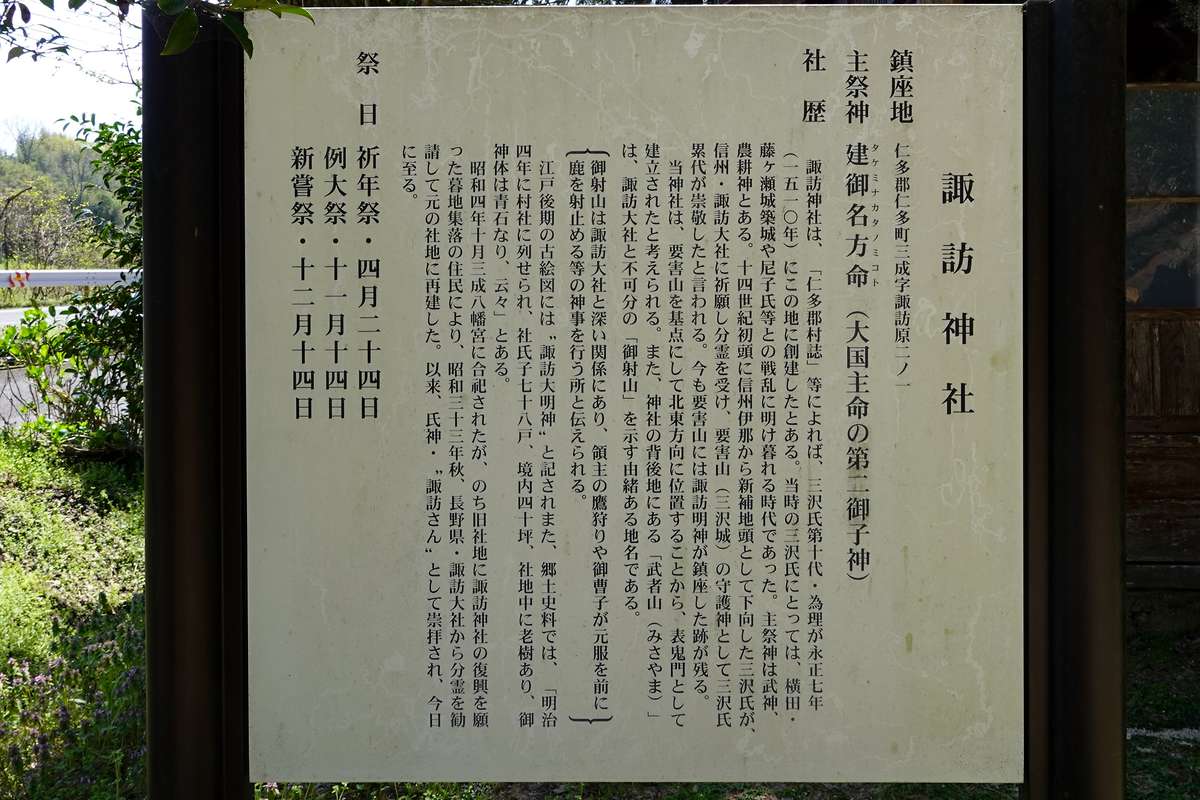 諏訪神社
鎮座地 仁多郡仁多町三成字諏訪原二ノ一
主祭神 建御名方命（大国主命の第二御子神）
タケミナカタノミコト
社歴
諏訪神社は、「仁多郡村誌」等によれば、三沢氏第十代・為理が永正七年
（一五一〇年）にこの地に創建したとある。当時の三沢氏にとっては、横田・
藤ヶ瀬城築城や尼子氏等との戦乱に明け暮れる時代であった。主祭神は武神、
農耕神とある。十四世紀初頭に信州伊那から新補地頭として下向した三沢氏が、
信州・諏訪大社に祈願し分霊を受け、要害山（三沢城）の守護神として三沢氏
累代が崇敬したと言われる。今も要害山には諏訪明神が鎮座した跡が残る。
当神社は、要害山を基点にして北東方向に位置することから、表鬼門として
建立されたと考えられる。また、神社の背後地にある「武者山（みさやま）」
は、諏訪大社と不可分の「御射山」を示す由緒ある地名である。
御射山は諏訪大社と深い関係にあり、領主の鷹狩りや御曹子が元服を前に
鹿を射止める等の神事を行う所と伝えられる。
江戸後期の古絵図には〝諏訪大明神〟と記されまた、郷土史料では、「明治
四年に村社に列せられ、社氏子七十八戸、境内四十坪、社地中に老樹あり、御
神体は青石なり、云々」とある。
昭和四年十月三成八幡宮に合祀されたが、のち旧社地に諏訪神社の復興を願
った暮地集落の住民により、昭和三十三年秋、長野県・諏訪大社から分霊を勧
請して元の社地に再建した。以来、氏神・〝諏訪さん〟として崇拝され、今日
に至る。
祭日 祈年祭・四月二十四日
例大祭・十一月十四日
新嘗祭・十二月十四日